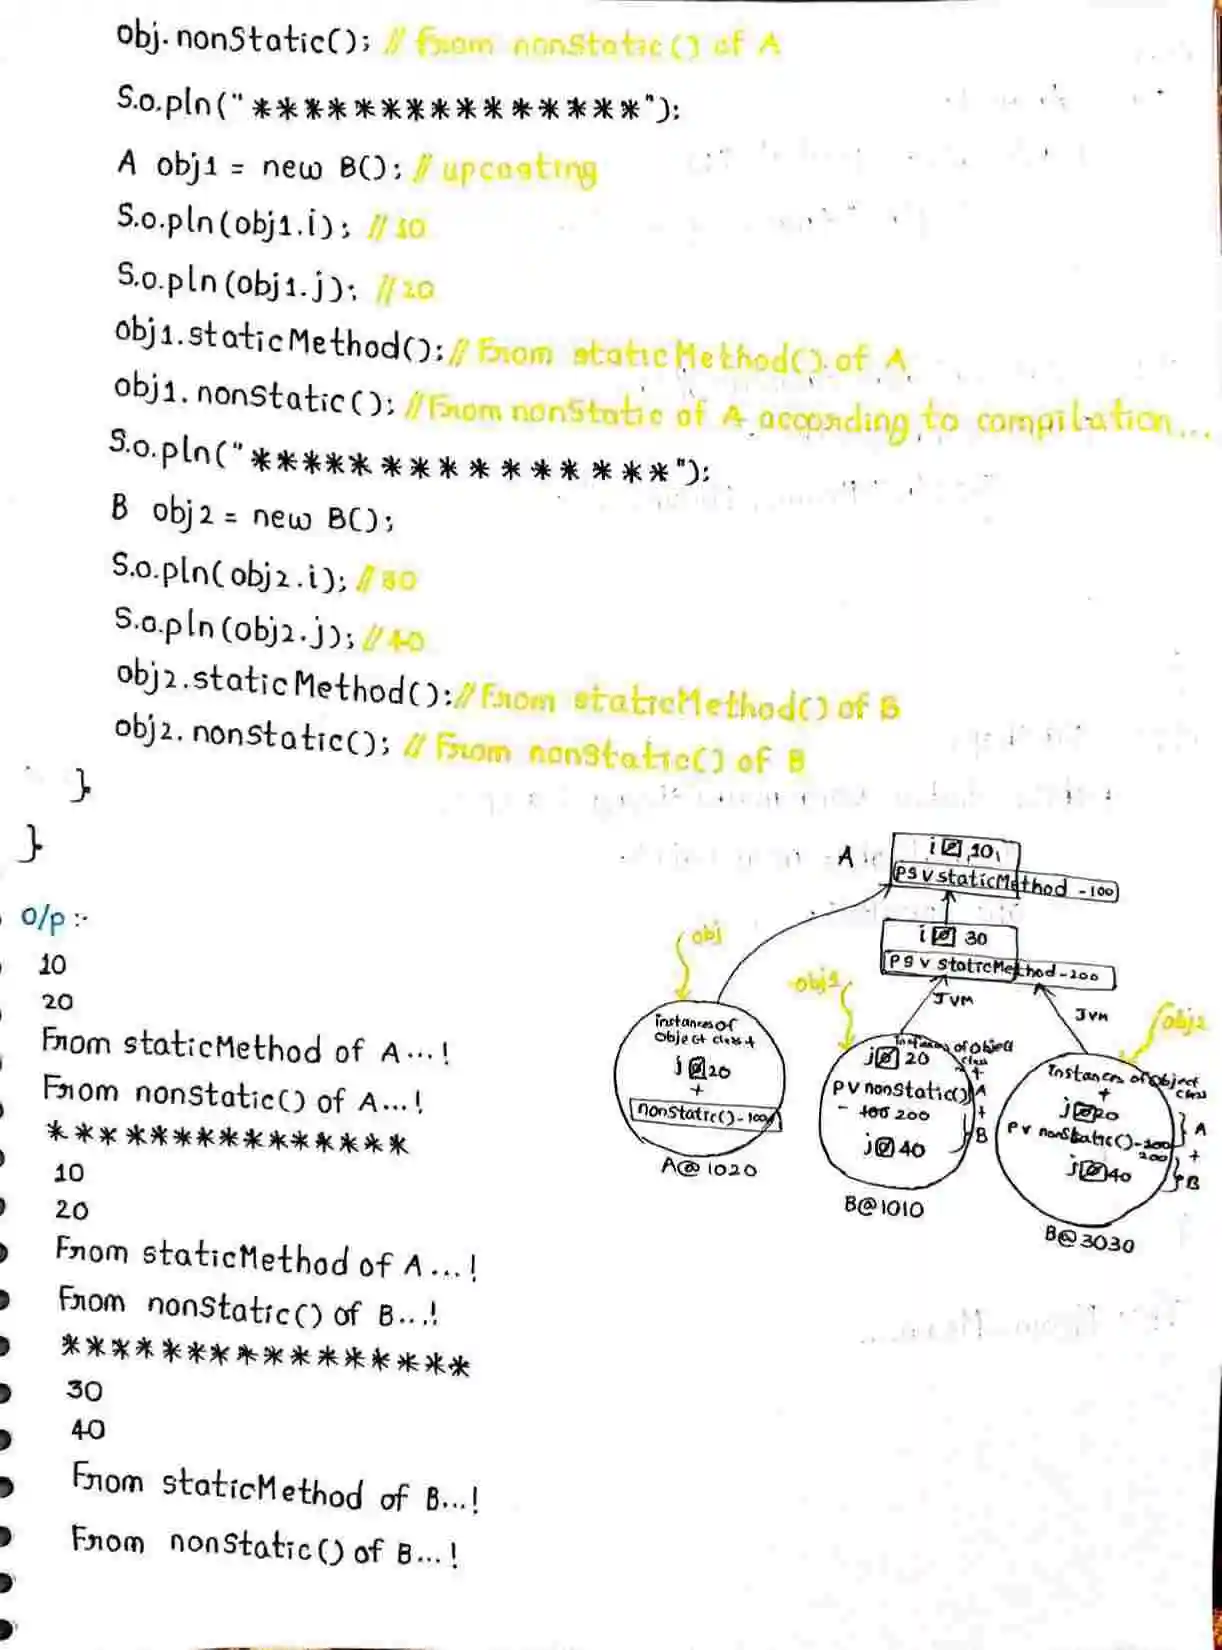 obj.nonStatic(); // From nonStatic() of A
S.o.pln("****************");
A obj1 = new B(); // upcasting
S.o.pln(obj1.i); // 10
S.o.pln(obj1.j); // 20
obj1.staticMethod(); // From staticMethod() of A
obj1.nonStatic(); // From nonStatic of A according to compilation...
S.o.pln("****************");
B obj2 = new B();
S.o.pln(obj2.i); // 30
S.o.pln(obj2.j); // 40
obj2.staticMethod(); // From staticMethod() of B
obj2.nonStatic(); // From nonStatic() of B
}
}
o/p :-
10
20
From staticMethod of A...!
From nonStatic() of A...!
****************
10
20
From staticMethod of A...!
From nonStatic() of B...!
*****************
30
40
From staticMethod of B...!
From nonStatic() of B...!
A
i 0 10
psv staticMethod -100
i 0 30
psv staticMethod-200
JVM
JVM
obj
instances of
object class +
j 0 20
+
nonStatic()-100
A@1020
obj1
instances of object
class
j 0 20
+
pv nonStatic() A
- 100 200
+
B
j 0 40
B@1010
obj2
Instances of object
class
+
j 0 20
pv nonStatic()-100
200
A
+
B
j 0 40
B@3030